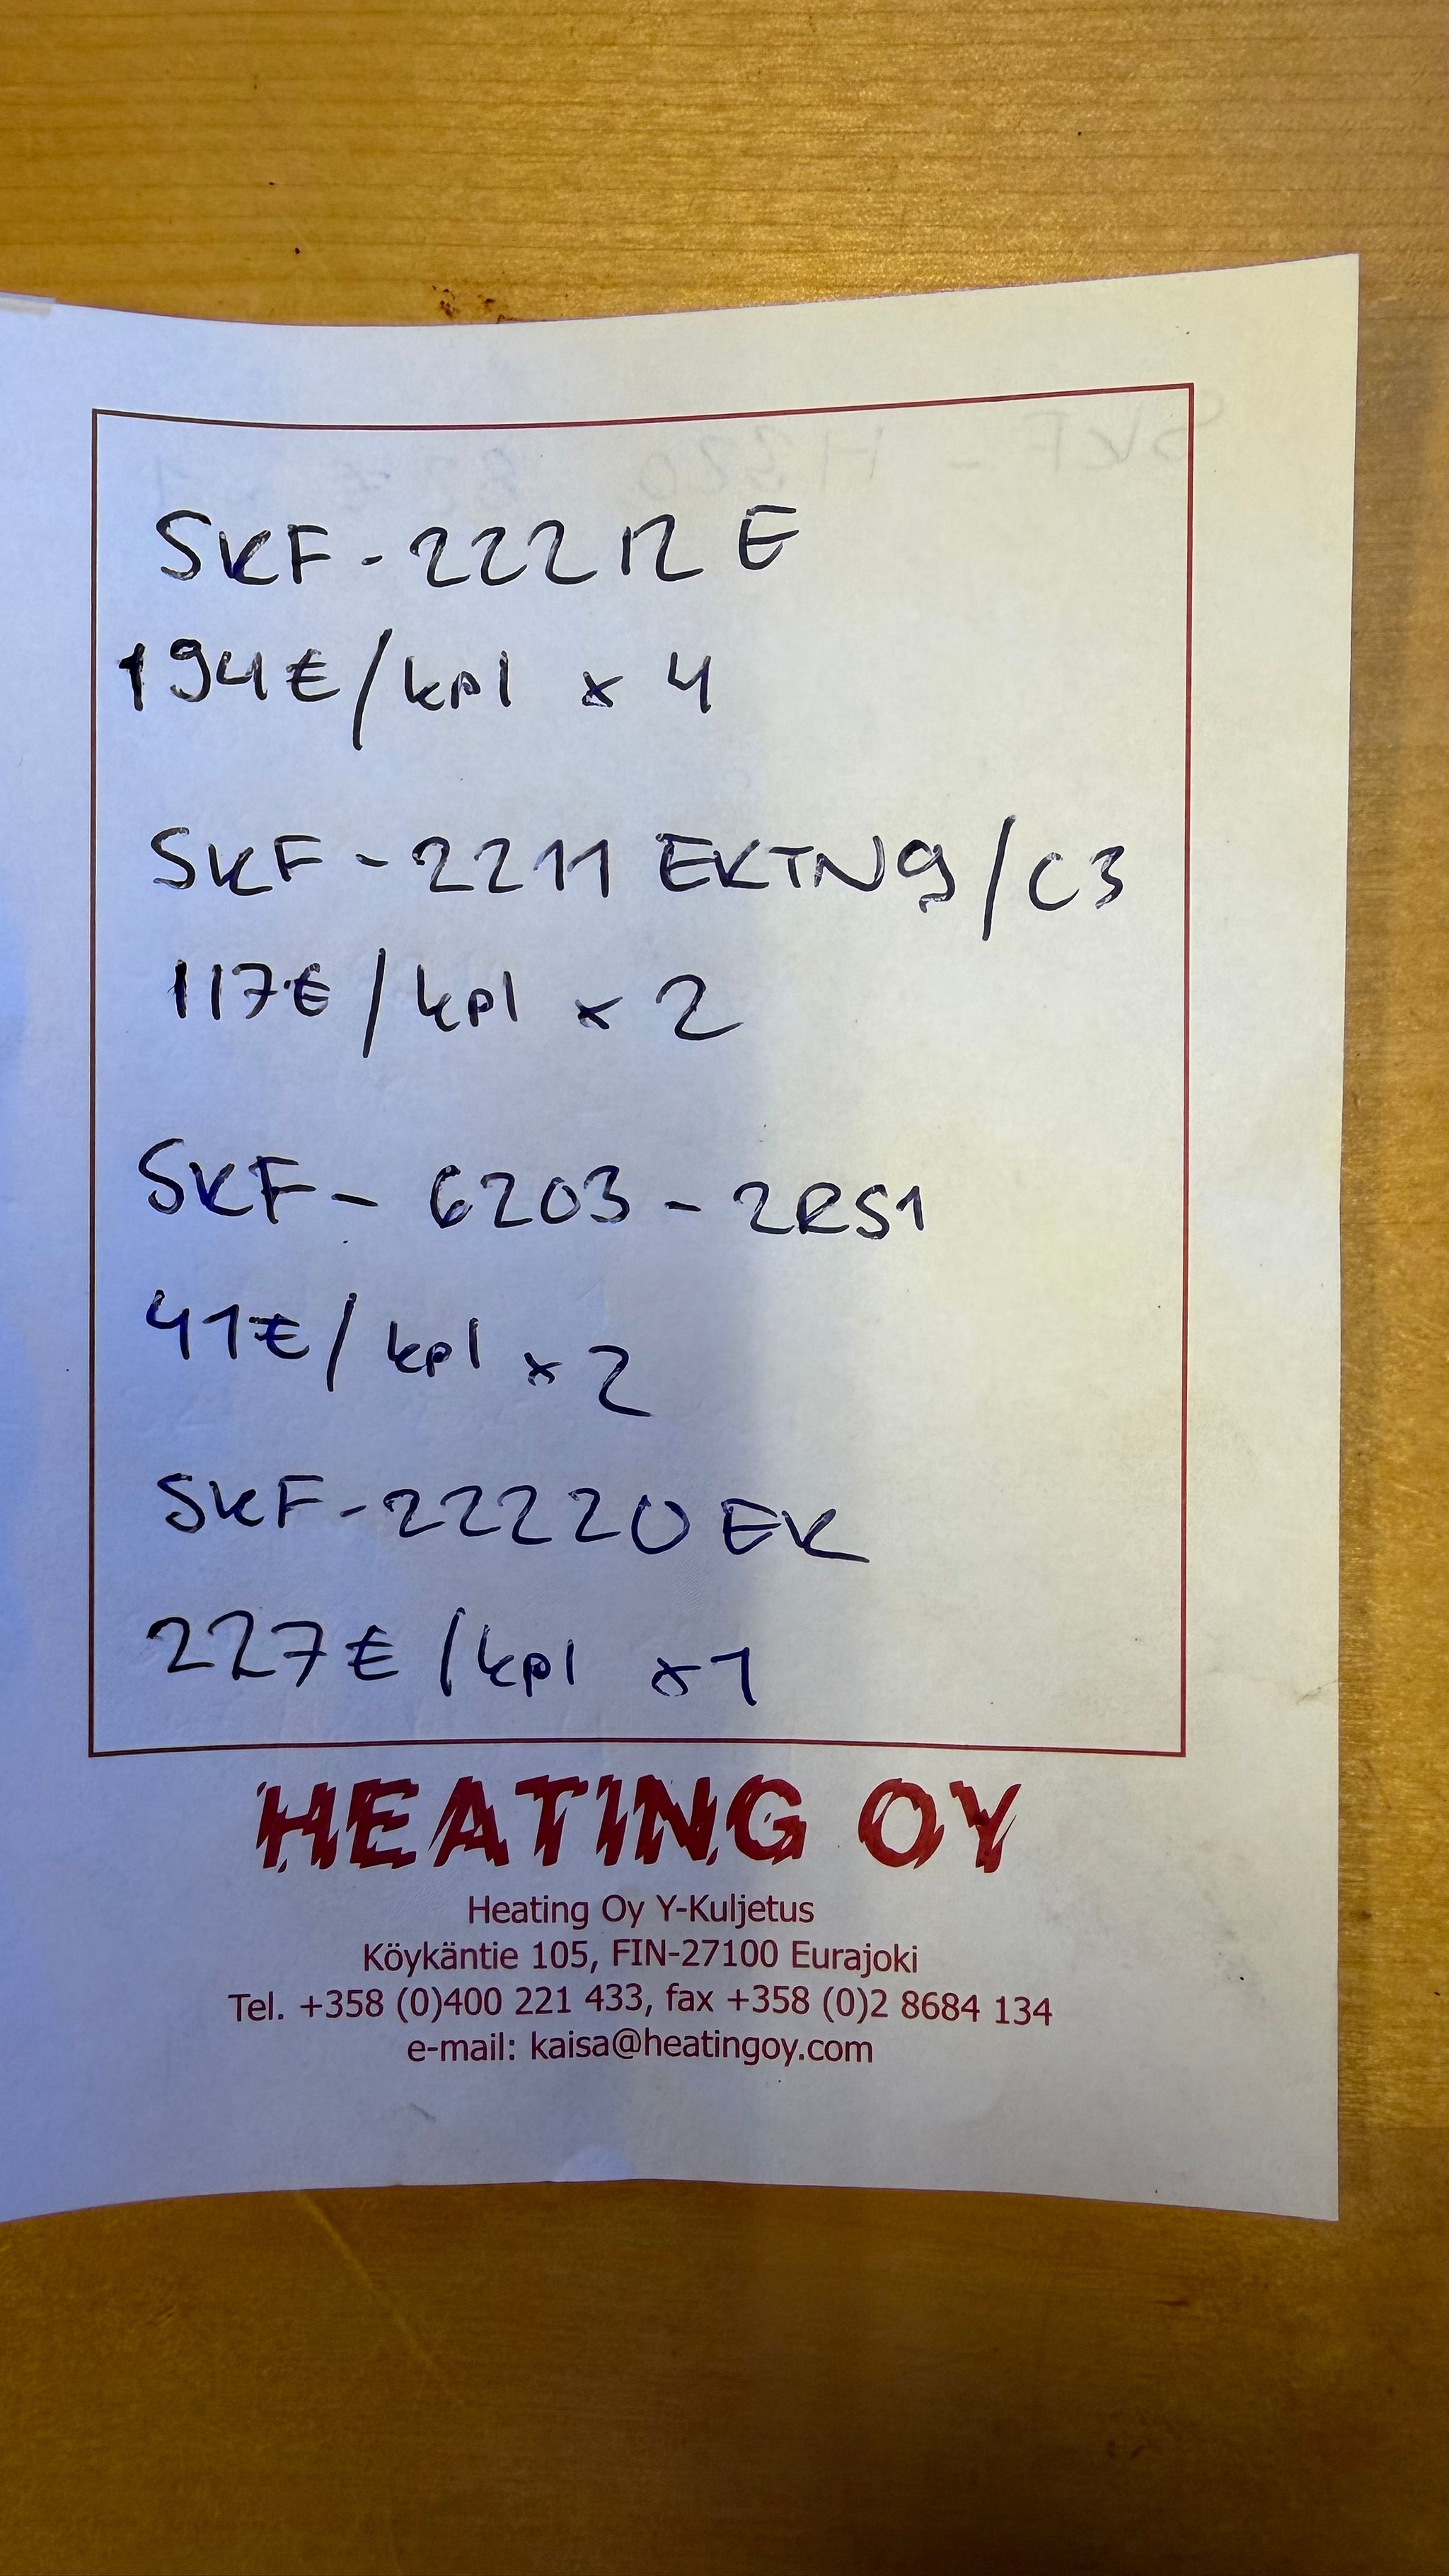 SKF-22212 E
194€/kpl x 4
SKF-2211 EKTN9/C3
117€/kpl x 2
SKF-6203-2RS1
41€/kpl x 2
SKF-22220 EK
227€/kpl x1
HEATING OY
Heating Oy Y-Kuljetus
Köykäntie 105, FIN-27100 Eurajoki
Tel. +358 (0)400 221 433, fax +358 (0)2 8684 134
e-mail: kaisa@heatingoy.com